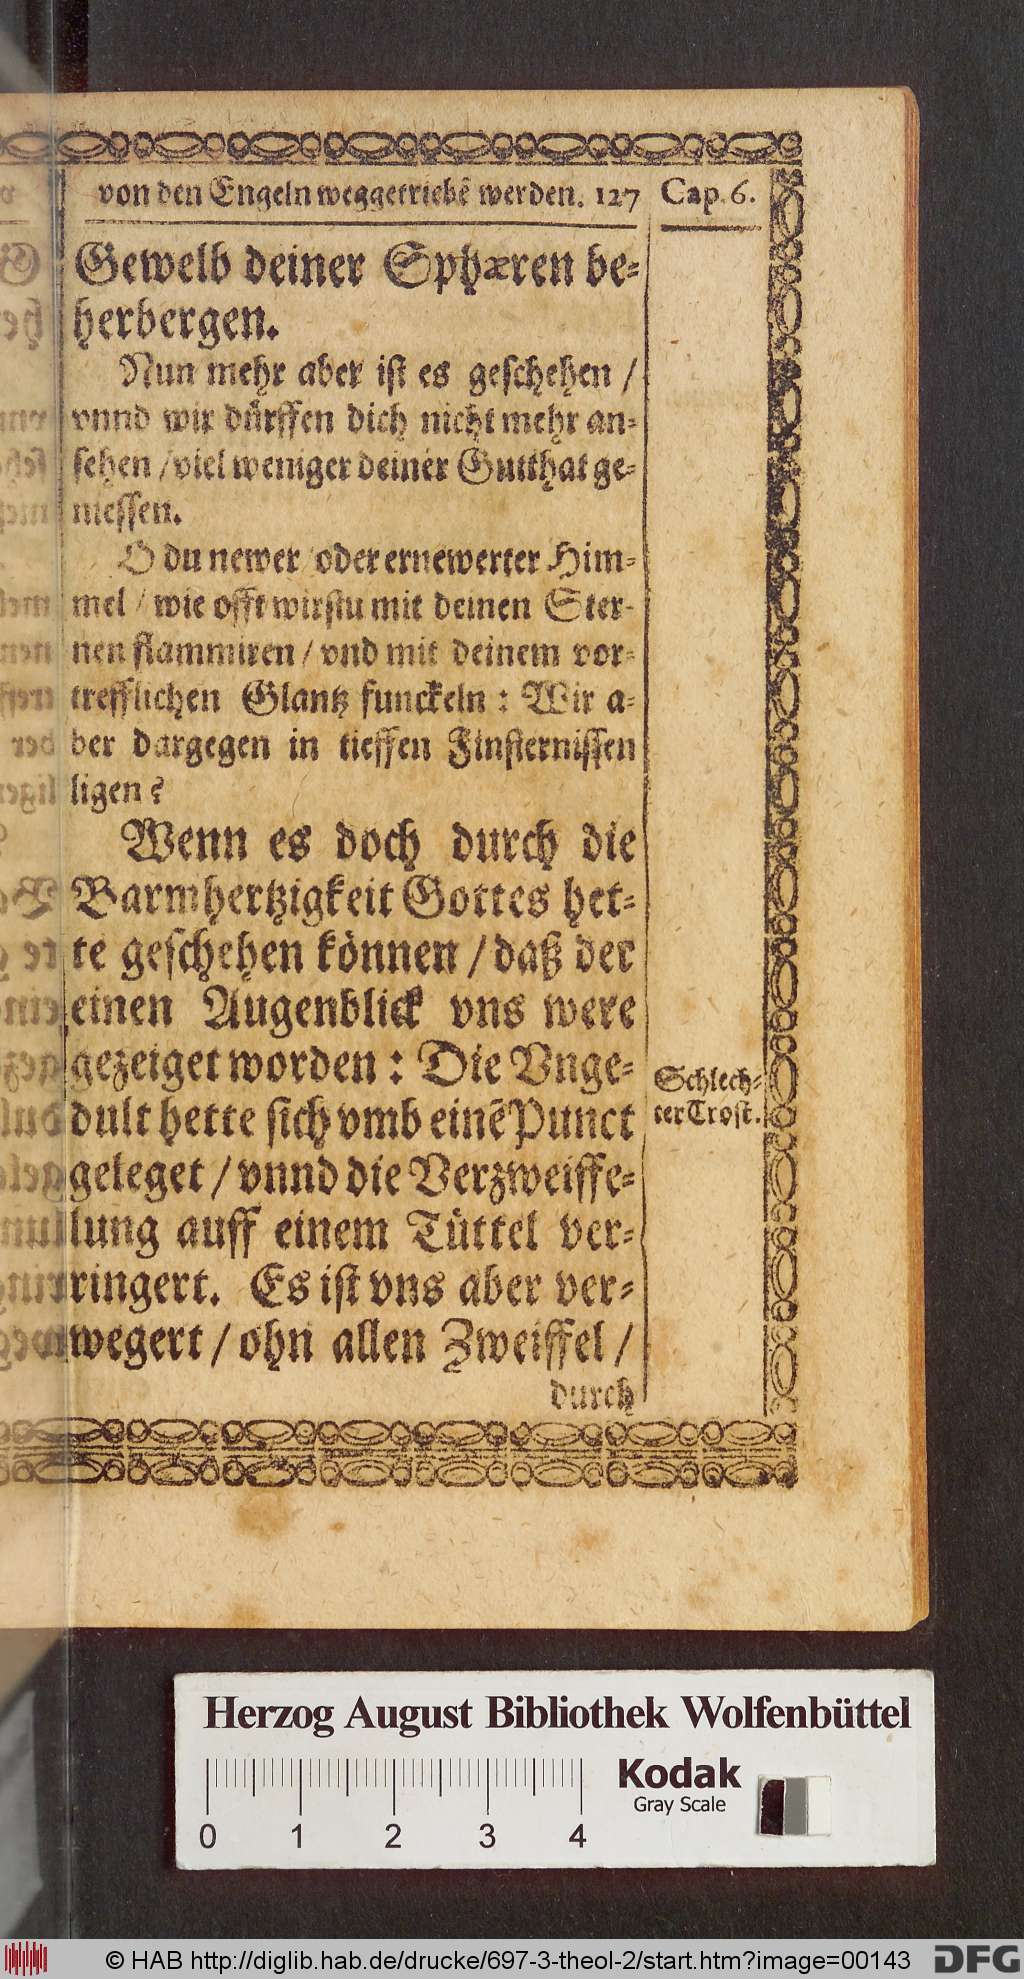 von den Engeln weggetriebē werden. 127 Cap. 6.
Gewelb deiner Sphæren be-
herbergen.
Nun mehr aber ist es geschehen /
vnnd wir dürffen dich nicht mehr an-
sehen / viel weniger deiner Gutthat ge-
niessen.
O du newer / oder ernewerter Him-
mel / wie offt wirstu mit deinen Ster-
nen flammiren / vnd mit deinem vor-
trefflichen Glantz funckeln : Wir a-
ber dargegen in tieffen Finsternissen
ligen?
Wenn es doch durch die
Barmhertzigkeit Gottes het-
te geschehen können / daß der
einen Augenblick vns were
gezeiget worden : Die Vnge-
dult hette sich vmb einē Punct
geleget / vnnd die Verzweiffe-
lung auff einem Tüttel ver-
ringert. Es ist vns aber ver-
wegert / ohn allen Zweiffel /
durch
Schlech-
ter Trost.
Herzog August Bibliothek Wolfenbüttel
0 1 2 3 4
Kodak
Gray Scale
© HAB http://diglib.hab.de/drucke/697-3-theol-2/start.htm?image=00143
DFG